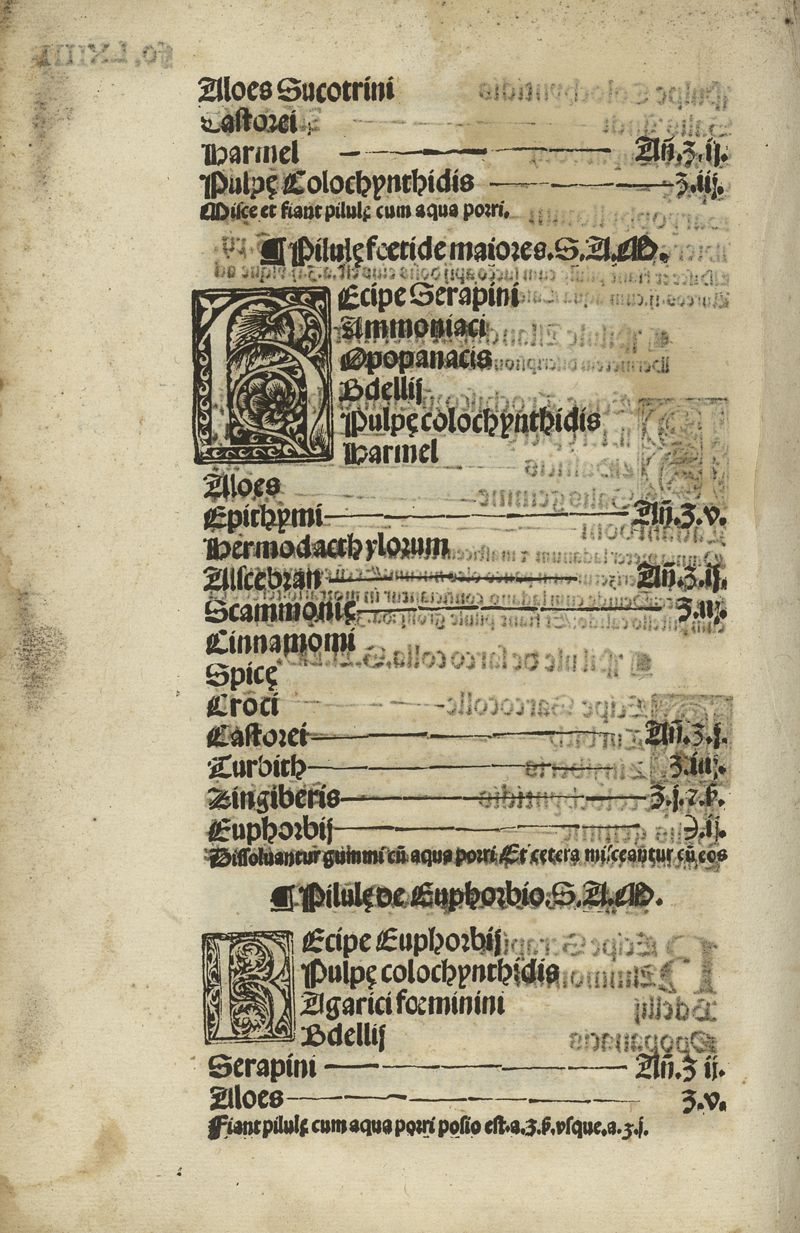 Aloes Sucotrini
Castorei
Harmel Añ.ʒ.ij.
Pulpę Colochynthidis ʒ.iij.
Misce et fiant pilulę cum aqua porri.
¶ Pilulę foetide maiores. S.A.M.
REcipe Serapini
Ammoniaci
Opopanacis
Bdellij
Pulpę colochynthidis
Harmel
Aloes
Epithymi Añ.ʒ.v.
Hermodacthylorum
Alscebran Añ.ʒ.ij.
Scammonię ʒ.iij.
Cinnamomi
Spicę
Croci
Castorei Añ.ʒ.j.
Turbith ʒ.iiij.
Zingiberis ʒ.j.⁊.ß.
Euphorbij ℈.ij.
Dissoluantur gummi cũ aqua porri. Et cetera misceantur cũ eos
¶ Pilulę de Euphorbio. S.A.M.
REcipe Euphorbij
Pulpę colochynthidis
Agarici foeminini
Bdellij
Serapini Añ.ʒ ij.
Aloes ʒ.v.
Fiant pilulę cum aqua porri posio est.a.ʒ.ß.vsque.a.ʒ.j.